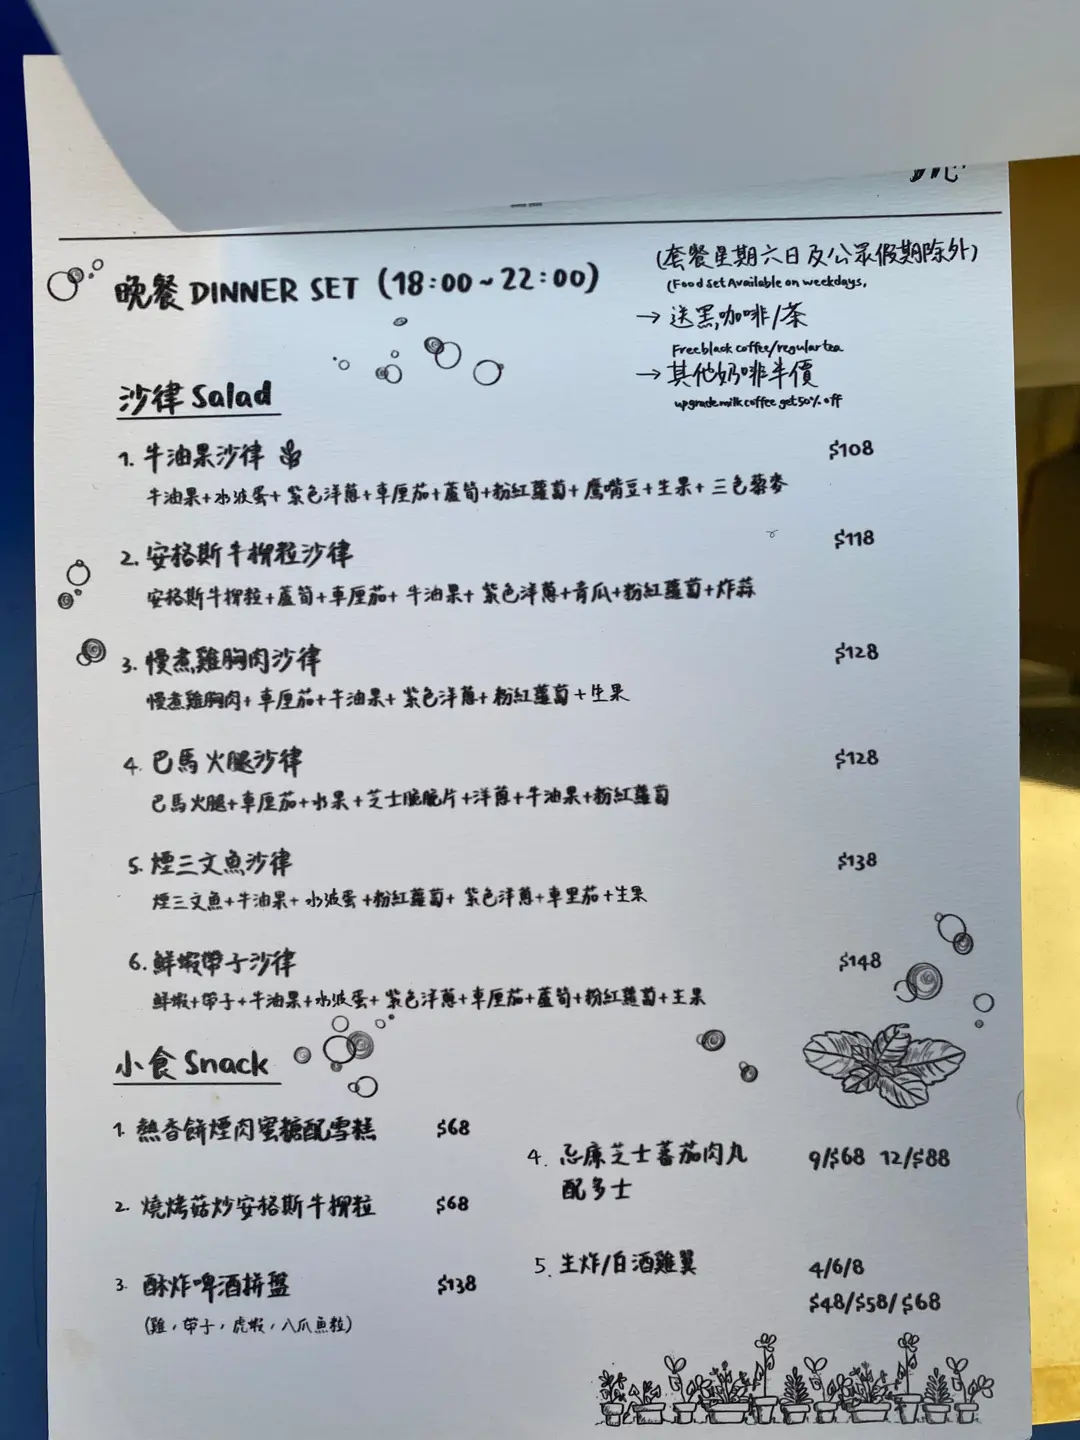 晚餐 DINNER SET (18:00~22:00)
(套餐星期六日及公眾假期除外)
(Food set Available on weekdays,
→ 送黑咖啡/茶
Free black coffee/regular tea
→ 其他奶啡半價
upgrade milk coffee get 50% off
沙律 Salad
1. 牛油果沙律 $108
牛油果+水波蛋+紫色洋蔥+車厘茄+蘆筍+粉紅蘿蔔+鷹嘴豆+生果+三色藜麥
2. 安格斯牛柳粒沙律 $118
安格斯牛柳粒+蘆筍+車厘茄+牛油果+紫色洋蔥+青瓜+粉紅蘿蔔+炸蒜
3. 慢煮雞胸肉沙律 $128
慢煮雞胸肉+車厘茄+牛油果+紫色洋蔥+粉紅蘿蔔+生果
4. 巴馬火腿沙律 $128
巴馬火腿+車厘茄+水果+芝士脆脆片+洋蔥+牛油果+粉紅蘿蔔
5. 煙三文魚沙律 $138
煙三文魚+牛油果+水波蛋+粉紅蘿蔔+紫色洋蔥+車里茄+生果
6. 鮮蝦帶子沙律 $148
鮮蝦+帶子+牛油果+水波蛋+紫色洋蔥+車厘茄+蘆筍+粉紅蘿蔔+生果
小食 Snack
1. 熱香餅煙肉蜜糖配雪糕 $68
2. 燒烤菇炒安格斯牛柳粒 $68
3. 酥炸啤酒拼盤 $138
(雞,帶子,虎蝦,八爪魚粒)
4. 忌廉芝士蕃茄肉丸 9/$68 12/$88
配多士
5. 生炸/白酒雞翼 4/6/8
$48/$58/$68